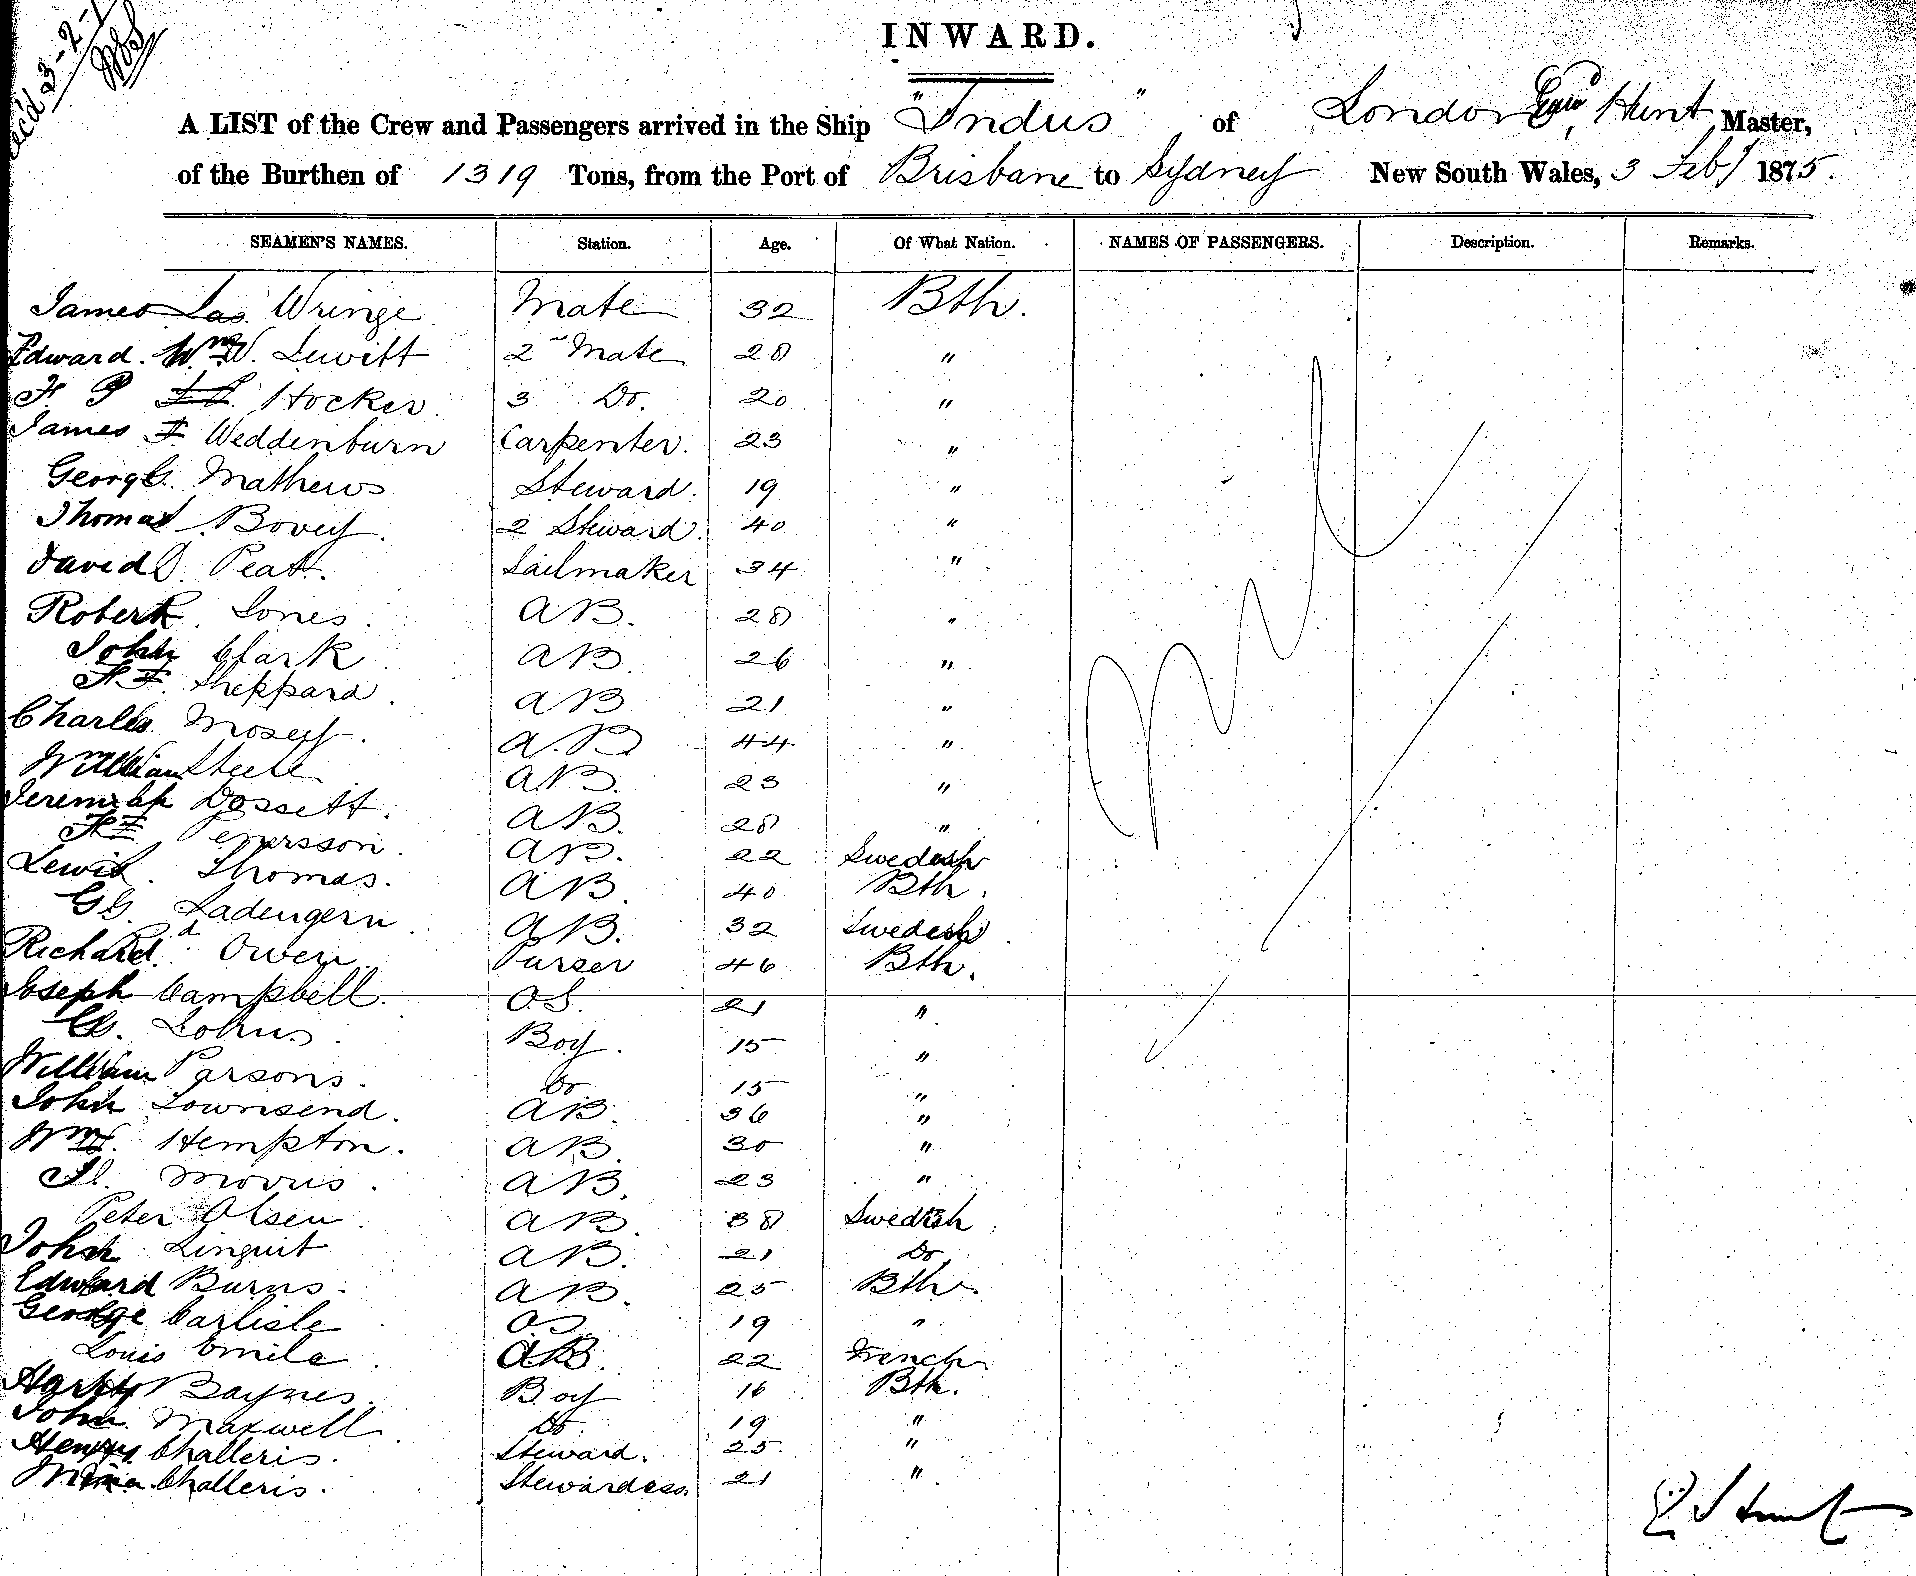 Rec'd 3-2-7
INWARD.
A LIST of the Crew and Passengers arrived in the Ship "Indus" of London Hunt Master,
of the Burthen of 1319 Tons, from the Port of Brisbane to Sydney New South Wales, 3 Feby 1875.
SEAMEN'S NAMES. Station. Age. Of What Nation. NAMES OF PASSENGERS. Description. Remarks.
James Jas Wringe Mate 32 Bth.
Edward Wm W. Lewitt 2nd Mate 28 "
F P Hocker 3 Do. 20 "
James F Weddenburn Carpenter. 23 "
George Mathews Steward. 19 "
Thomas Bovey. 2 Steward. 40 "
David D. Peat. Sailmaker 34 "
Robert Jones. AB. 28 "
John Clark AB 26 "
Sheppard. AB 21 "
Charles Mosey. A.B 44 "
William Steele AB. 23 "
Jeremiah Dossett. AB. 28 "
AB. 22 Swedish
Lewis. Thomas. AB. 40 Bth.
G. Ladengern. AB. 32 Swedish.
Richard. Owen. Purser 46 Bth.
Joseph Campbell. OS. 21 "
Boy. 15 "
William Parsons. Do 15 "
John Townsend. AB. 36 "
Wm H. Hempton. AB. 30 "
Morris. AB. 23 "
Peter Olsen. AB. 38 Swedish.
John Linquit AB. 21 Do
Edward Burns. AB. 25 Bth.
George Carlisle OS. 19 "
Louis Emile. AB. 22 French.
Harry Baynes. Boy 16 Bth.
John Maxwell. Do 19 "
Henry Challeris. Steward. 25. "
Challeris. Stewardess. 21 "
E Hunt